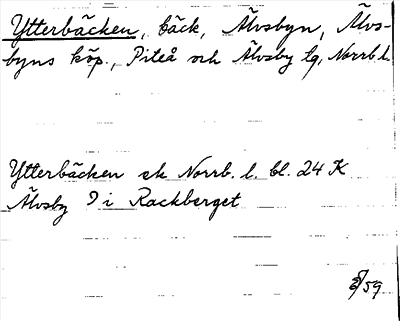 Ytterbäcken, bäck, Älvsbyn, Älvs-
byns köp., Piteå och Älvsby tg, Norrb. l.
Ytterbäcken ek Norrb. l. bl. 24 K
Älvsby 9 i Rackberget
/59